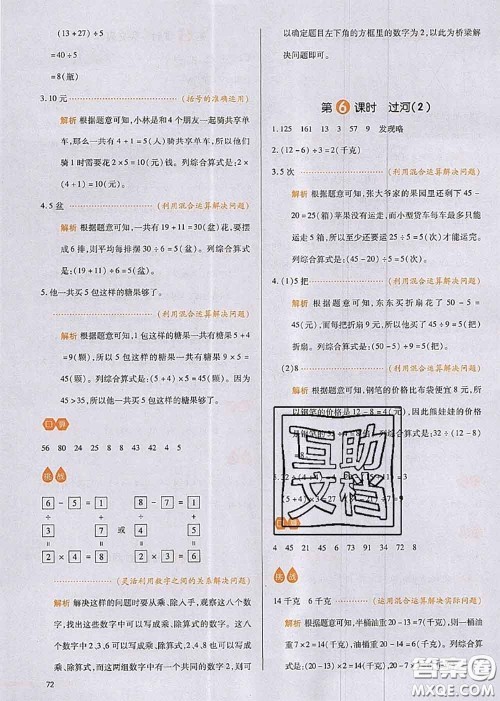 (13+27)÷5
=40÷5
=8(瓶)
3.10元 (括号的准确运用)
解析 根据题意可知,小林是和4个朋友一起骑共享单车,那么一共有4+1=5(人)骑共享单车,所以他们
骑1时需要花2×5=10(元)钱。列综合算式是:2×(4+1)=10(元)。
4.5盆 (利用混合运算解决问题)
解析 根据题意可知,一共有19+11=30(盆)花,要摆
成6排,则平均每排摆30÷6=5(盆)。列综合算式
是:(19+11)÷6=5(盆)。
5.他一共买5包这样的糖果够了。
(利用混合运算解决问题)
解析 根据题意可知,1包这样的糖果一共有5+4
=9(颗),所以5包这样的糖果一共有5×9=
45(颗)。列综合算式是:(5+4)×5=45(颗)。因为
45>35,所以他一共买5包这样的糖果够了。
口算
56 80 24 25 8 32 43 4 9
挑战
6-5=1 8-7=1
÷ + 或 ÷ +
2 7 4 5
= = = =
2×4=8 2×3=6
(灵活利用数字之间的关系解决问题)
解析 解决这样的问题时要从乘、除入手,观察这八个数
字,找出这些数字中可以写成乘、除算式的数字,这八个
数字中2,3,6可以写成乘、除算式,2,4,8可以写成乘、
除算式,而这两组数字中有一个共同的数字2,由此可
72
以确定题目左下角的方框里的数字为2,以此为桥梁解
决问题即可。
第6课时 过河(2)
1.125 161 13 3 57 9 发现略
2.(12-6)÷3=2(千克)
3.5次 (利用混合运算解决问题)
解析 根据题意可知,张大爷家的果园里还剩下45-
20=25(箱)苹果没有运走,而小型货车每次最多只能
运走5箱,所以至少还需要25÷5=5(次)才能运完。
列综合算式是:(45-20)÷5=5(次)。
4.(1)5把 (利用混合运算解决问题)
解析 根据题意可知,东东买折扇花了50-5=
45(元),而每把折扇9元,所以他买了45÷9=5(把)
折扇。列综合算式是:(50-5)÷9=5(把)。
(2)8 (利用混合运算解决问题)
解析 根据题意可知,钢笔的价格比布袋便宜8元,所
以钢笔的价格是12-8=4(元),因此熊娃娃的价格
是钢笔的32÷4=8倍。列综合算式是:32÷
(12-8)=8。
互助
文档
口算
4 45 21 6 51 34 72 8
挑战
14千克 6千克 (运用混合运算解决实际问题)
解析 根据题意可知,半桶油重20-13=7(千克),所以
油重7×2=14(千克),油桶重20-14=6(千克)。列综
合算式是:(20-13)×2=14(千克),20-14=6(千克)。
答案圈
MXQE.COM